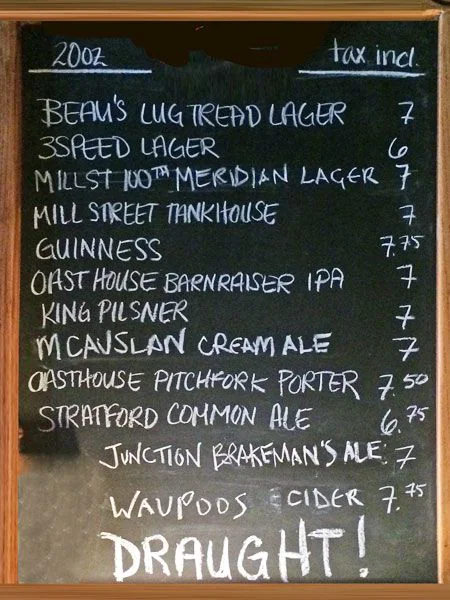 20oz tax incl.
BEAU'S LUG TREAD LAGER 7
3SPEED LAGER 6
MILLST 100TH MERIDIAN LAGER 7
MILL STREET TANKHOUSE 7
GUINNESS 7.75
OAST HOUSE BARNRAISER IPA 7
KING PILSNER 7
MCAUSLAN CREAM ALE 7
OASTHOUSE PITCHFORK PORTER 7.50
STRATFORD COMMON ALE 6.75
JUNCTION BRAKEMAN'S ALE: 7
WAUPOOS CIDER 7.75
DRAUGHT!